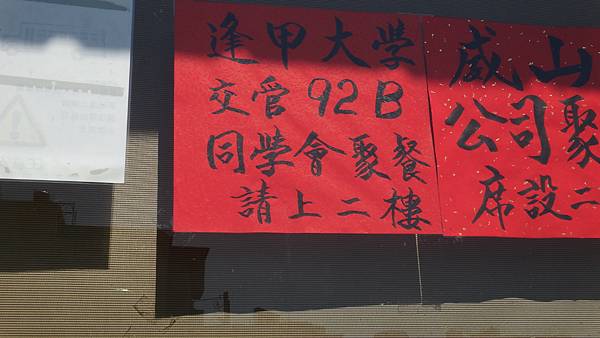 逢甲大學
交管92B
同學會聚餐
請上二樓
威山
公司聚
席設二